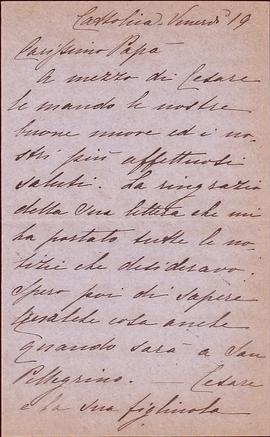 Cattolica, Venerdì 19
Carissimo Papà
A mezzo di Cesare
le mando le nostre
buone nuove ed i no-
stri più affettuosi
saluti. La ringrazio
della Sua lettera che mi
ha portato tutte le no-
tizie che desideravo.
Spero poi di sapere
qualche cosa anche
quando sarà a San
Pellegrino. — Cesare
e la sua figliuola